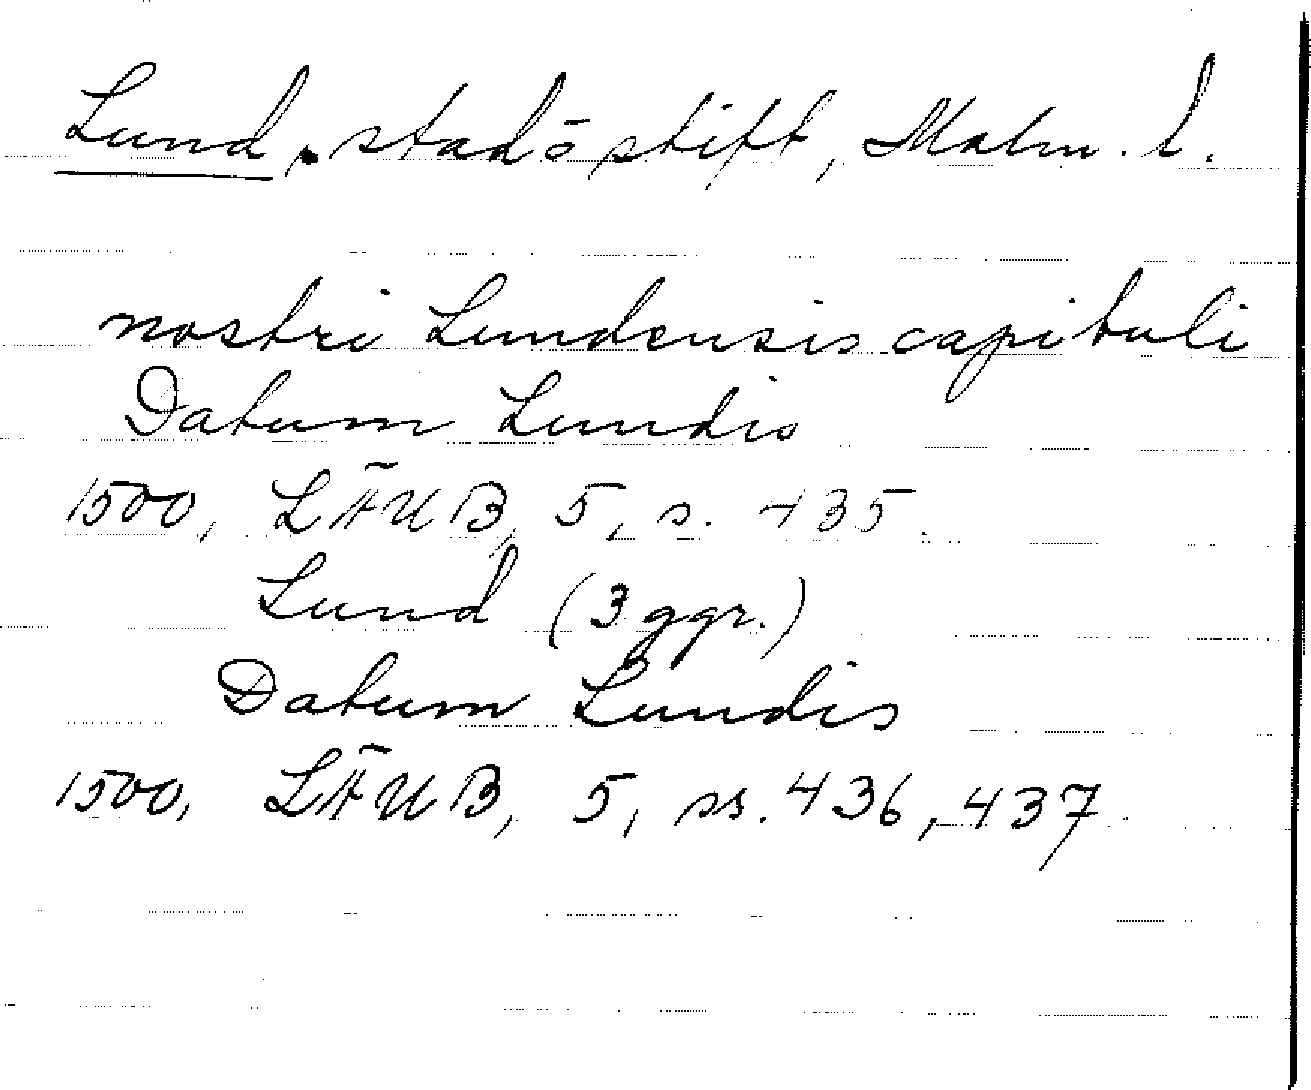 Lund, stad o stift, Malm. l.
nostri Lundensis capituli
Datum Lundis
1500, LÄUB, 5, s. 435.
Lund (3 ggr.)
Datum Lundis
1500, LÄUB, 5, ss. 436, 437